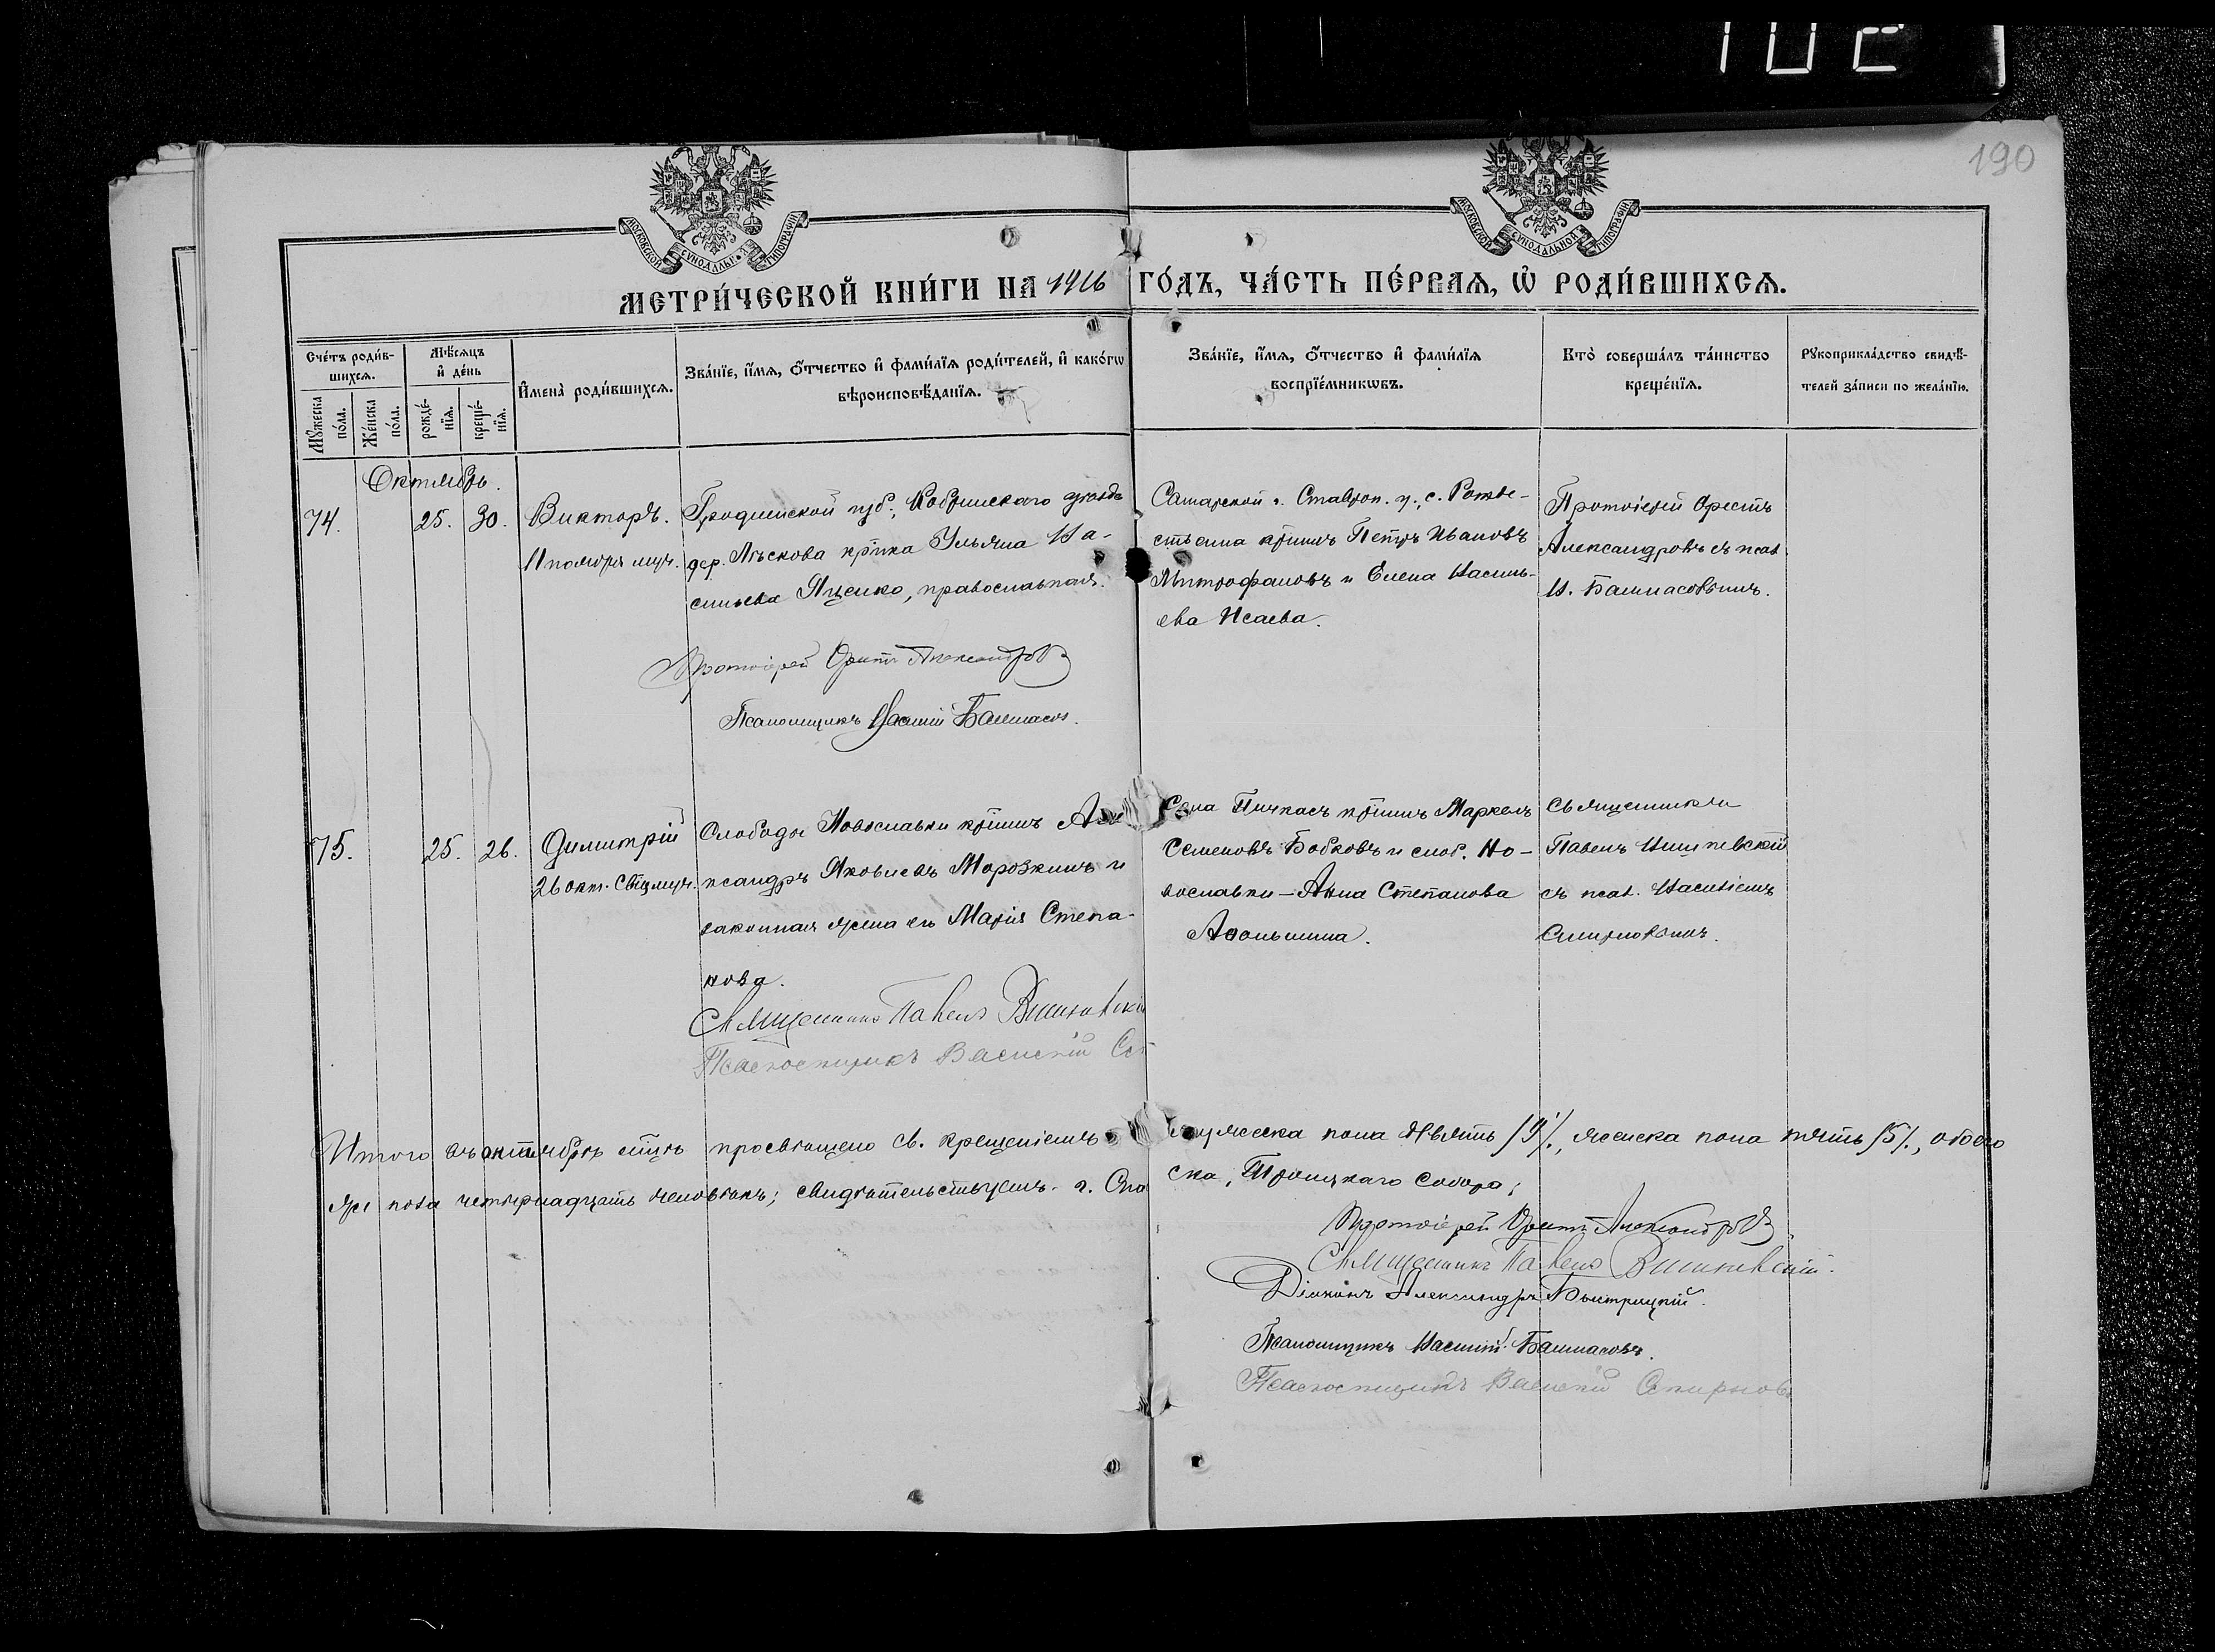 102
190
МОСКОВСКОЙ СУНОДАЛЬНОЙ ТИПОГРАФІИ
МОСКОВСКОЙ СУНОДАЛЬНОЙ ТИПОГРАФІИ
МЕТРИ́ЧЕСКОЙ КНИ́ГИ НА 1916 ГО́ДЪ, ЧА́СТЬ ПЕ́РВАѦ, Ѡ РОДИ́ВШИХСѦ.
Сче́тъ роди́вшихсѧ.
Мꙋ́жеска по́ла.
Же́нска по́ла.
Мѣ́сѧцъ и҆ де́нь
рожде́нїѧ.
креще́нїѧ.
И҆мена̀ роди́вшихсѧ.
Зва́нїе, и҆́мѧ, ѻ҆́тчество и҆ фами́лїѧ роди́телей, и҆ како́гѡ
вѣроисповѣ́данїѧ.
Зва́нїе, и҆́мѧ, ѻ҆́тчество и҆ фами́лїѧ
воспрїе́мникѡвъ.
Кто̀ соверша́лъ та́инство
креще́нїѧ.
Рꙋкоприкла́дство свидѣ́-
телей за́писи по жела́нїю.
Октябрь.
74. 25. 30. Викторъ.
11 ноября муч.
Гродненской губ., Кобринскаго уѣзда
дер. Лѣскова кр-нка Ульяна Ва-
сильева Яценко, православная.
Протоіерей Орестъ Александровъ
Псаломщикъ Василій Балмасовъ.
Самарской г. Ставроп. у., с. Рожде-
ствена кр-нинъ Петръ Ивановъ
Митрофановъ и Елена Василь-
ева Исаева.
Протоіерей Орестъ
Александровъ съ псал.
В. Балмасовымъ.
75. 25. 26. Димитрій
26 окт. Свщмуч.
Слободы Новославки кр-нинъ Але
ксандръ Яковлевъ Морозкинъ и
законная жена его Марія Степа-
нова.
Священникъ Павелъ Вишневскій
Псаломщикъ Василій См
Села Пичкасъ кр-нинъ Маркелъ
Семеновъ Бобковъ и слоб. Но-
вославки - Анна Степанова
Аѳонькина.
Священникъ
Павелъ Вишневскій
съ псал. Василіемъ
Смирновымъ.
Итого въ октябрѣ мцѣ просвѣщено св. крещеніемъ мужеска пола девять /9/., женска пола пять /5/., обоего
же пола четырнадцать человѣкъ; свидѣтельствуемъ. г. Спасска, Троицкаго собора;
Протоіерей Орестъ Александровъ
Священникъ Павелъ Вишневскій.
Діаконъ Александръ Быстрицкій.
Псаломщикъ Василій Балмасовъ.
Псаломщикъ Василій Смирновъ